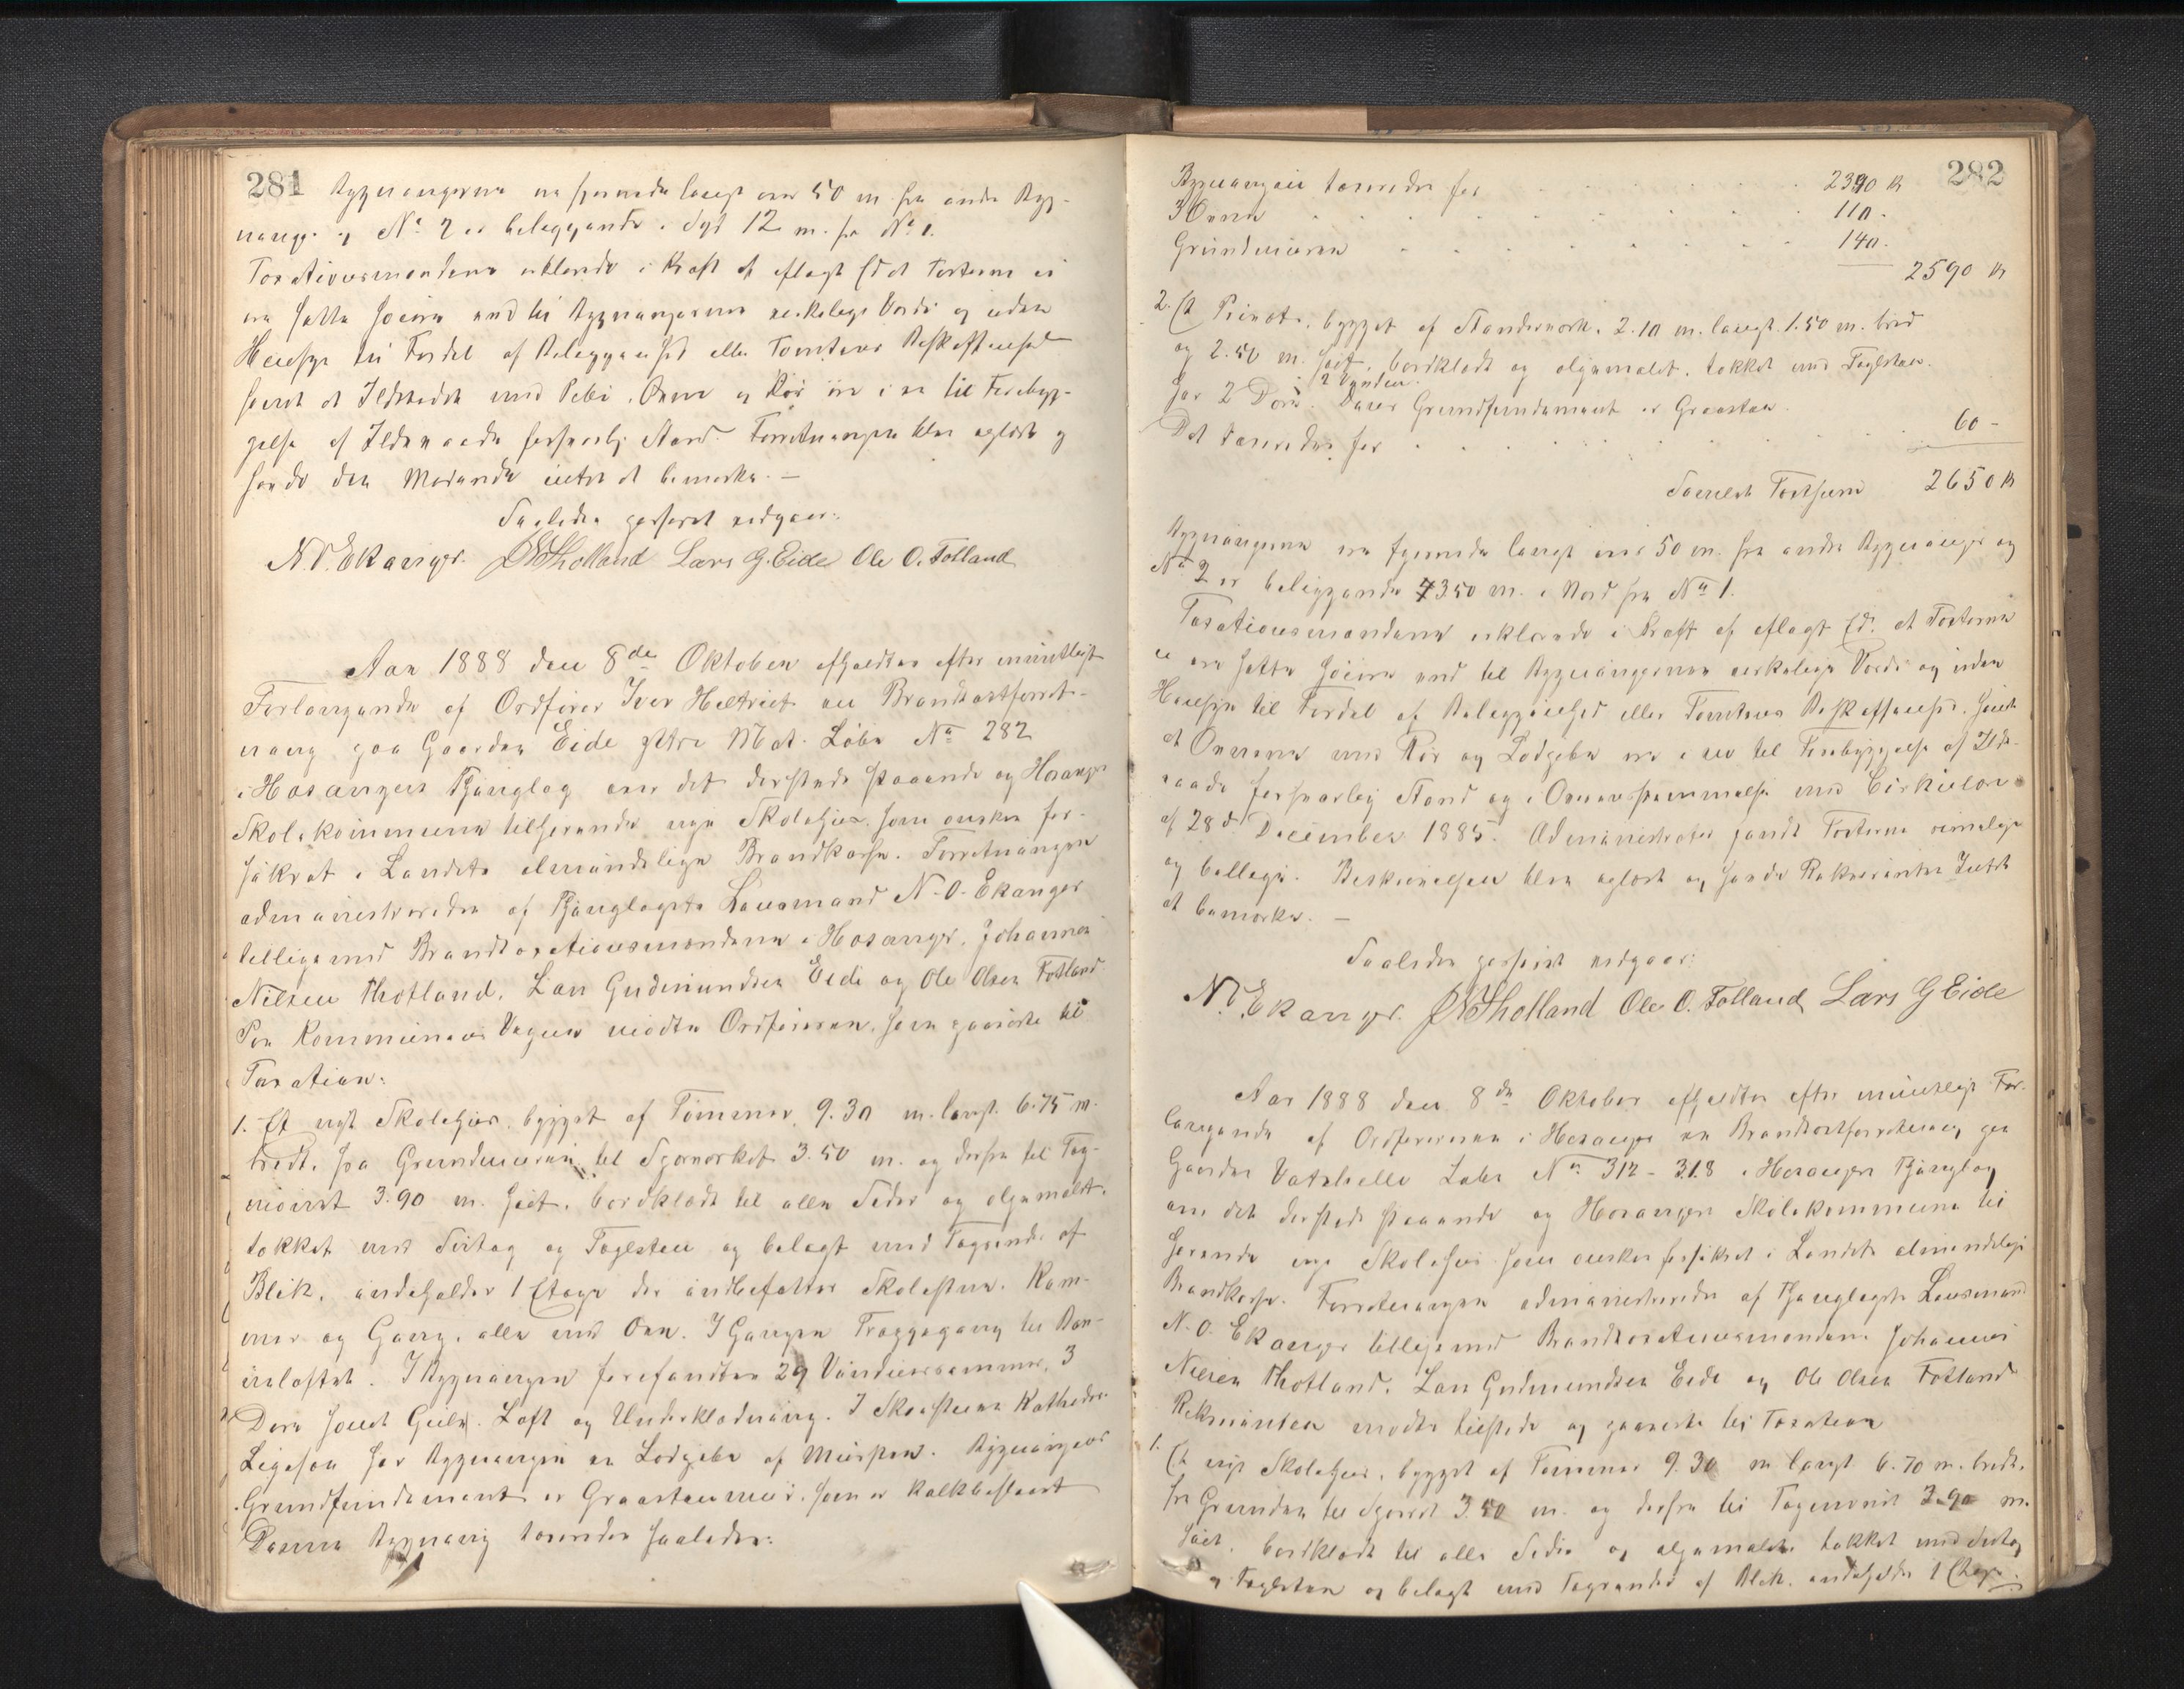 281
Bygningerne ere fjernede længst over 50 m. fra andre Byg-
ninger og No 2 er beliggende i Syd 12 m. fra No 1.
Taxationsmændene erklærede i Kraft af aflagt Ed at Taxterne ei
ere satte høiere end til Bygningernes virkelige Værdi og uden
Hensyn til Fordel af Beliggenhed eller Tomtens Beskaffenhed
samt at Ildstedet med Pibe, Ovne og Rør ere i en til Forebyg-
gelse af Ildsvaade forsvarlig Stand. Forretningen blev oplæst og
havde den Mødende intet at bemærke. —
Saaledes passeret vidner:
N. O. Ekanger. J N Thotland Lars G. Eide Ole O. Fotland
Aar 1888 den 8de Oktober afholdtes efter mundtligt
Forlangende af Ordfører Iver Heltveit en Brandtaxtforret-
ning paa Gaarden Eide ytre Mat. Løbe No 282
i Hosanger Thinglag over det dersteds staaende og Hosanger
Skolekommune tilhørende nye Skolehus, som ønskes for-
sikret i Landets almindelige Brandkasse. Forretningen
administreredes af Thinglagets Lensmand N. O. Ekanger
tilligemed Brandtaxationsmændene i Hosanger, Johannes
Nilsen Thotland, Lars Gudmundsen Eide og Ole Olsen Fotland
Paa Kommunens Vegne mødte Ordføreren, som paaviste til
Taxation:
1. Et nyt Skolehus, bygget af Tømmer, 9.30 m. langt, 6.75 m.
bredt, fra Grundmuren til Sperværket 3.50 m. og derfra til Tag-
mønet 3.90 m. høit, bordklædt til alle Sider og oljemalet,
tækket med Sutag og Taglsten og belagt med Tagrender af
Blik, indeholder 1 Etage der indbefatter Skolestue, Kam-
mer og Gang, alle med Ovn. I Gangen Trappegang til Bov-
enloftet. I Bygningen forefandtes 29 Vinduesrammer, 3
Døre samt Gulv, Loft og Underklædning. I Skolestuen Katheder
Ligesaa har Bygningen en Lodpibe af Mursten. Bygningens
Grundfundament er Graastensmur, som er kalkbeslaaet
Denne Bygning taxeredes saaledes:
282
Bygningen taxeredes for 2340 Kr
3 Ovne 110 -
Grundmuren 140 -
2590 Kr
2. Et Privet, bygget af Standerværk, 2.10 m. langt, 1.50 m. bred
og 2.50 m. høit, bordklædt og oljemalet, tækket med Taglsten.
har 2 Døre, 2 Vinduer. Dets Grundfundament er Graasten.
Det taxeredes for 60 -
Samlet Taxtsum 2650 Kr
Bygningerne ere fjernede længst over 50 m. fra andre Bygninger og
No 2 er beliggende 7350 m. i Nord fra No 1.
Taxationsmændene erklærede i Kraft af aflagt Ed, at Taxterne
ei ere satte høiere end til Bygningernes virkelige Værdi og uden
Hensyn til Fordel af Beliggenhed eller Tomtens Beskaffenhed, samt
at Ovnene med Rør og Lodpibe ere i en til Forebyggelse af Ilds-
vaade forsvarlig Stand og i Overensstemmelse med Cirkulære
af 28d December 1885. Administrator fandt Taxterne rimelige
og billige. Beskrivelsen blev oplæst og havde Rekvirenten Intet
at bemærke. —
Saaledes passeret vidner:
N. O. Ekanger. J N Thotland Ole O. Fotland Lars G Eide
Aar 1888 den 8de Oktober afholdtes efter mundtligt For-
langende af Ordføreren i Hosanger en Brandtaxtforretning paa
Gaarden Vatshelle Løbe No 317 - 318 i Hosanger Thinglag
over det dersteds staaende og Hosanger Skolekommune til
hørende nye Skolehus som ønskes forsikret i Landets almindelige
Brandkasse. Forretningen administreredes af Thinglagets Lensmand
N. O. Ekanger tilligemed Brandtaxationsmændene Johannes
Nilsen Thotland, Lars Gudmundsen Eide og Ole Olsen Fotland
Rekvirenten mødte tilstede og paaviste til Taxation
1. Et nyt Skolehus, bygget af Tømmer 9.30 m langt 6.70 m. bredt,
fra Grunden til Sperret 3.50 m. og derfra til Tagmønet 3.90 m.
høit, bordklædt til alle Sider og oljemalet, tækket med Sutag
og Taglsten og belagt med Tagrender af Blik, indeholder 1 Etage